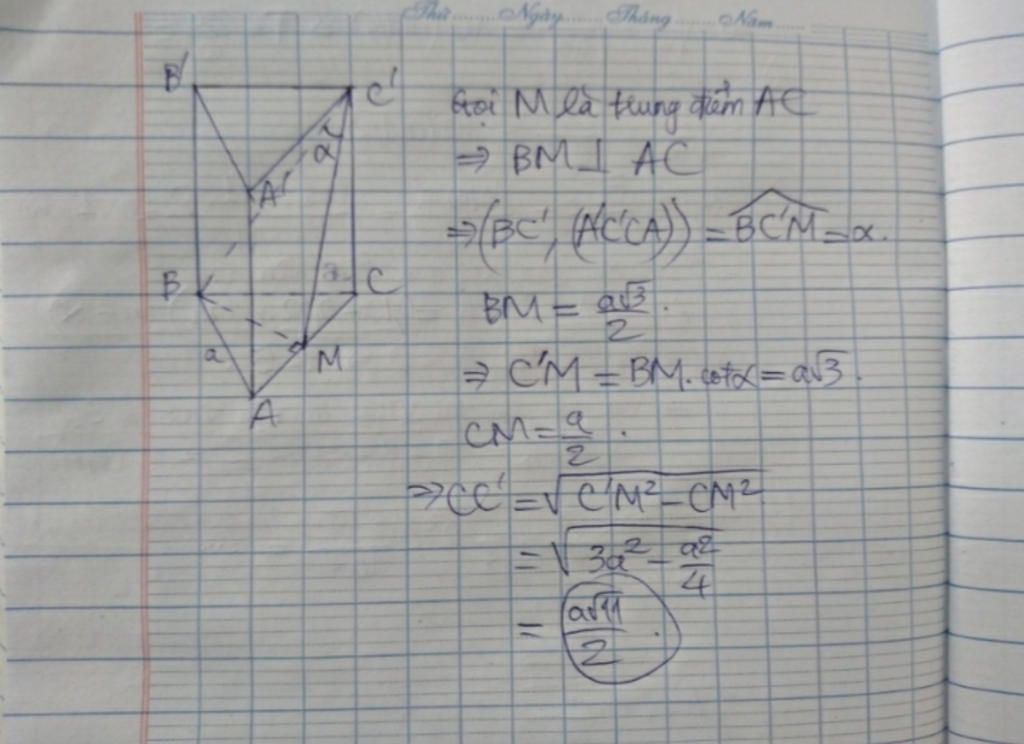 Thứ......... Ngày......... Tháng......... Năm.........
B'
C'
α
A'
B
C
a
M
A
Gọi M là trung điểm AC
⇒ BM ⊥ AC
⇒ (BC', (A'C'CA)) = \widehat{BC'M} = α.
BM = \frac{a√3}{2}.
⇒ C'M = BM.cotα = a√3.
CM = \frac{a}{2}.
⇒ CC' = \sqrt{C'M² - CM²}
= \sqrt{3a² - \frac{a²}{4}}
= \frac{a√11}{2}.